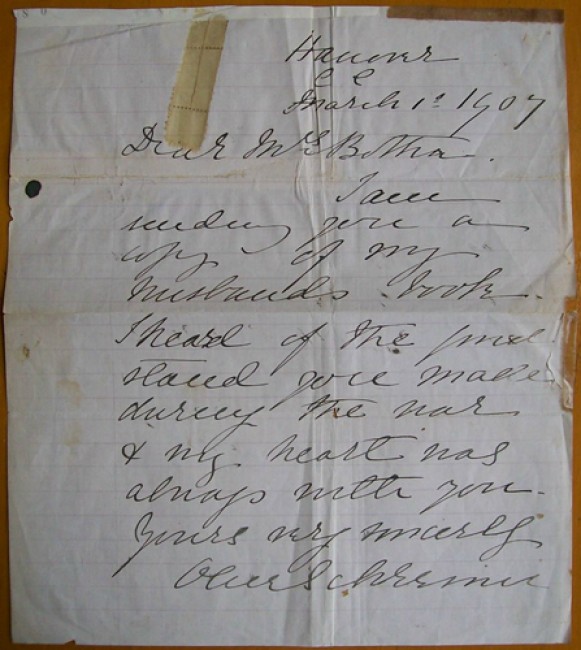 Hanover
C C
March 1st 1907
Dear Mrs Botha.
I am
sending you a
copy of my
husbands book.
I heard of the fine
stand you made
during the war
& my heart was
always with you.
Yours very sincerely
Olive Schreiner